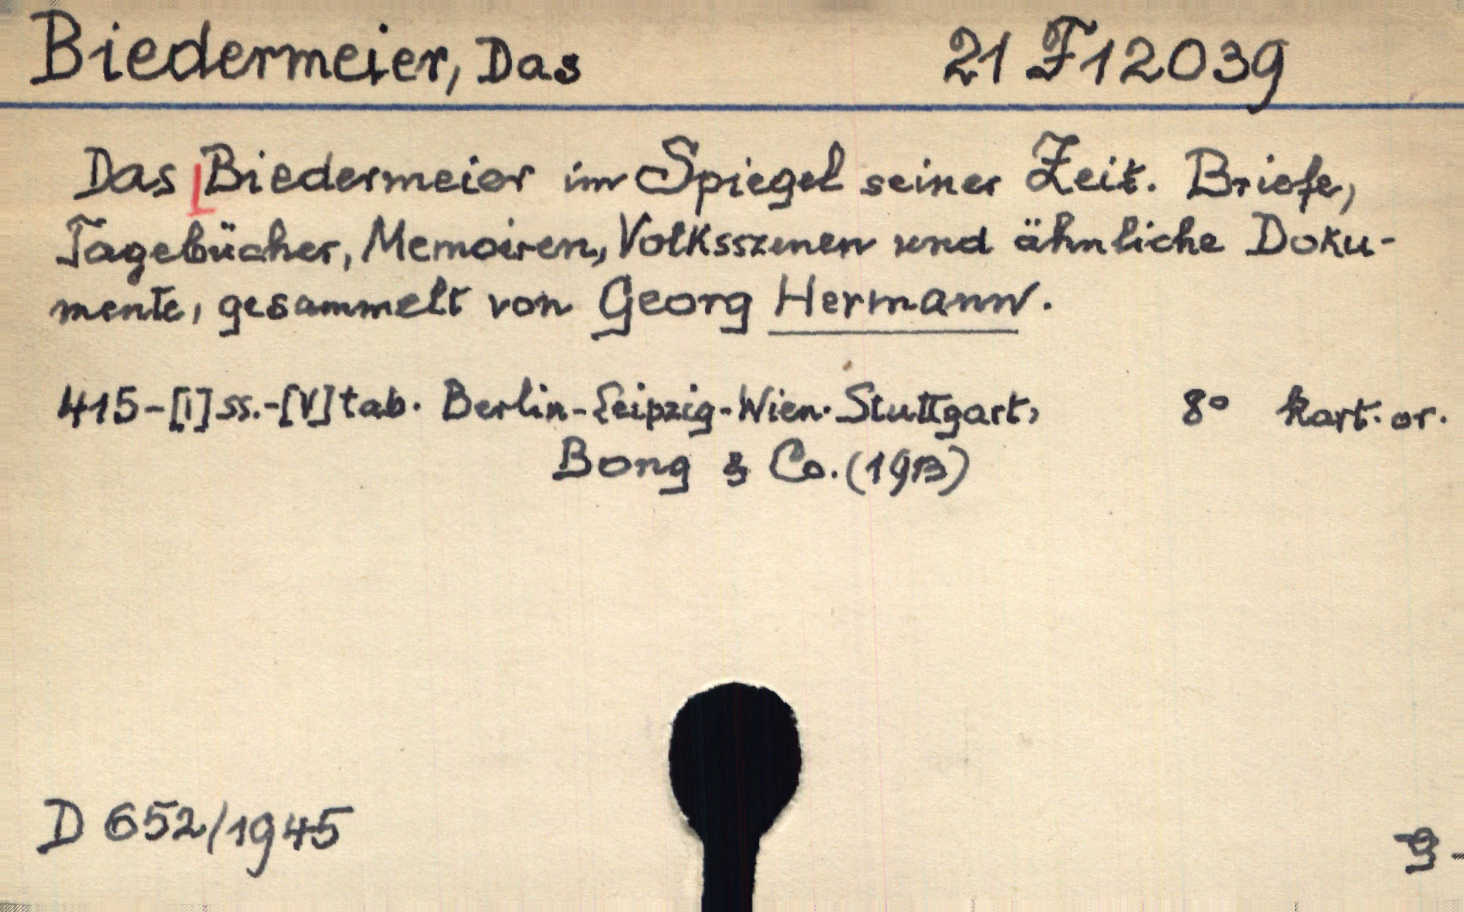 Biedermeier, Das 21 F 12039
Das Biedermeier im Spiegel seiner Zeit. Briefe,
Tagebücher, Memoiren, Volksszenen und ähnliche Doku-
mente, gesammelt von Georg Hermann.
415-[I] ss.-[V] tab. Berlin-Leipzig-Wien-Stuttgart, 8° kart. or.
Bong & Co. (1913)
D 652/1945